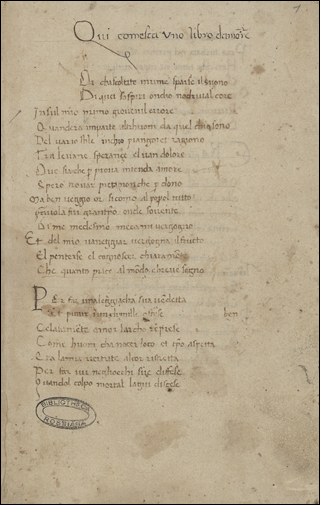 1
Qui comesca uno libro damore
Oi chascoltate inrime sparse ilsuono
Di quei sospiri ondio nodriual core
In sul mio primo giouenil errore
Quandera inparte altrhuom da quel chi sono
Del uario stile inchio piango et ragiono
Tra leuane speranze el uan dolore
Oue sia chi p proua intenda amore
Spero trouar pieta non che p dono
Ma ben ueggio or si como al popol tutto
fauola fui gran tempo onde souente
Di me medesmo meco mi uergogno
Et del mio uaneggiar uergogna il fructo
El pentirse el cognoscer chiaramente
Che quanto piace al mondo e breue sogno
Per far una leggiadra sua uendetta
Et punir in un di mille offese ben
Celatamente amor larcho riprese
Come huom cha nocer loco et tpo aspetta
Era la mia uertute al cor ristretta
Per far iui negliocchi sue difese
Quandol colpo mortal la giu discese
BIBLIOTHECA
ROSSIANA